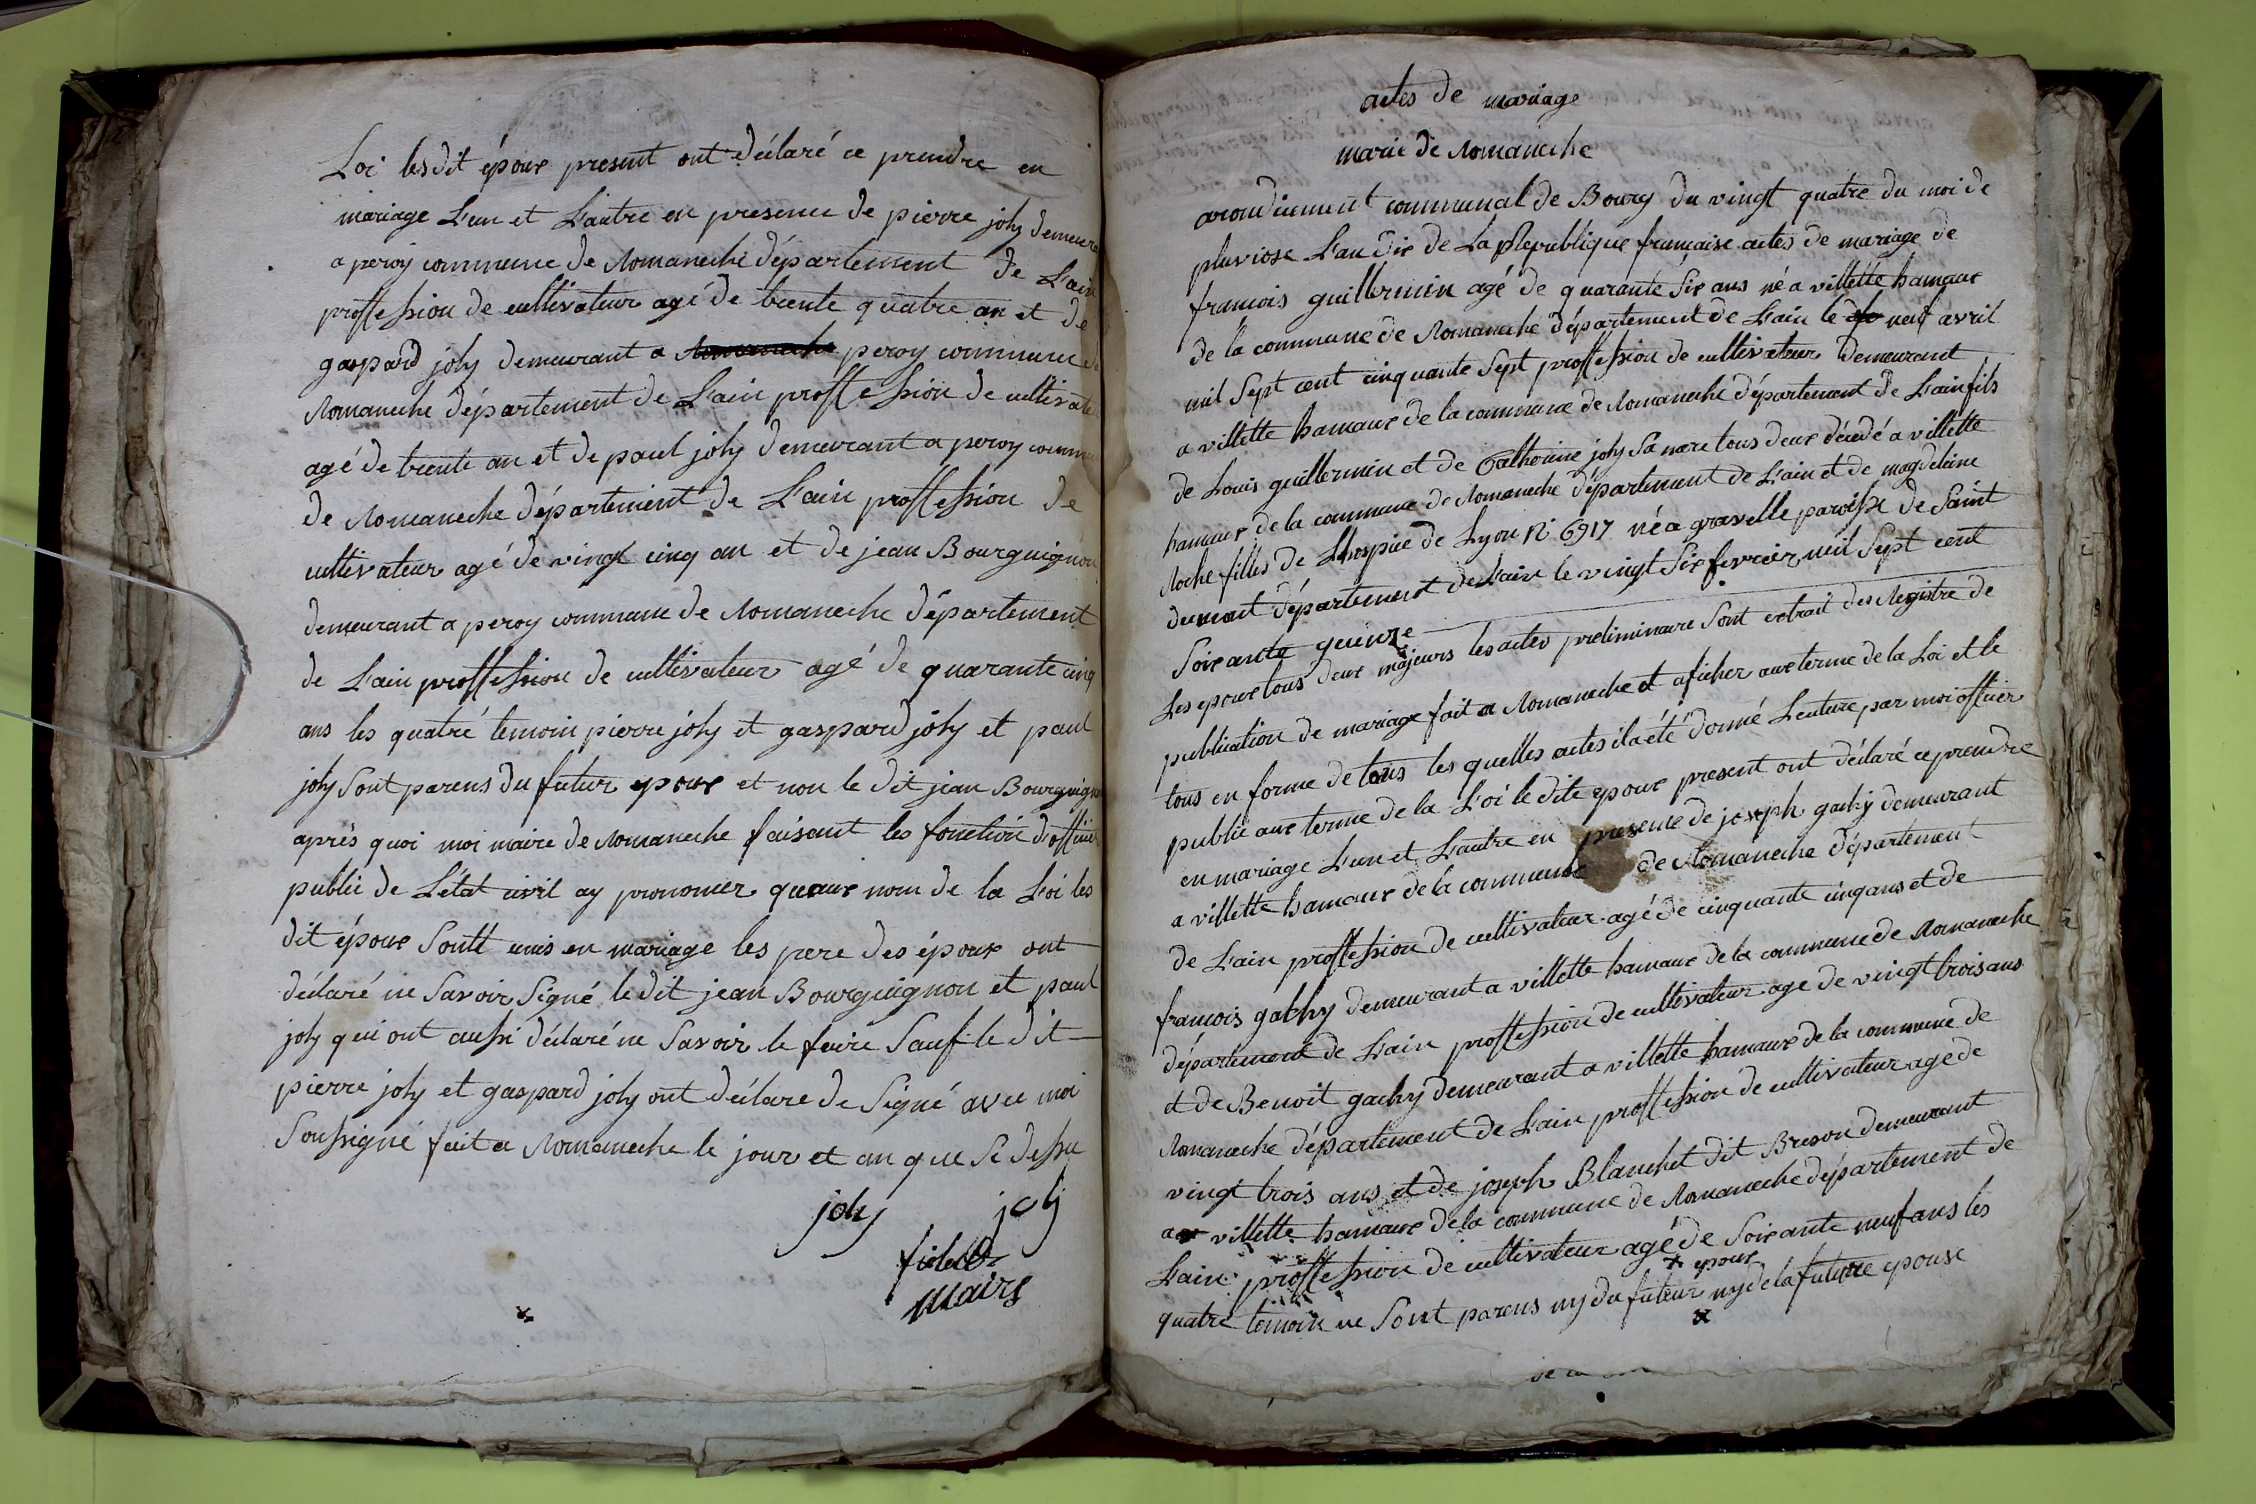 Loi lesdit époux present ont déclaré ce prendre en
mariage L'un et L'autre en presence de pierre joly demeura
a peroy commune de Romaneche département de L'ain
proffession de cultivateur agé de trente quatre an et de
gaspard joly demeurant a Romaneche peroy commune de
Romaneche département de L'ain proffession de cultivate
agé de trente an et de paul joly demeurant a peroy commu
de Romaneche département de L'ain proffession de
cultivateur agé de vingt cinq an et de jean Bourguignon
demeurant a peroy commune de Romaneche département
de L'ain proffession de cultivateur agé de quarante cinq
ans les quatre temoin pierre joly et gaspard joly et paul
joly Sont parens du futur epoux et non le dit jean Bourguign
après quoi moi maire de Romaneche faisant les fonction d'officier
public de L'état civil ay pronomer quaux nom de la Loi les
dit époux Sontt unis en mariage les pere des époux ont
déclaré ne Savoir Signé le dit jean Bourguignon et paul
joly qui ont aussi déclaré ne Savoir le faire Sauf le dit
pierre joly et gaspard joly ont déclare de Signé avec moi
Soussigné fait a Romaneche le jour et an que Si dessu
joly joly
maire
actes de mariage
marie de Romaneche
arondicement communal de Bourg du vingt quatre du moi de
pluviose L'an dix de La Republique française actes de mariage de
francois guillermin agé de quarante Six ans né a villette hamaux
de la commune de Romaneche département de L'ain le neuf avril
mil Sept cent cinquante Sept proffession de cultivateur demeurant
a villette hamaux de la commune de Romaneche département de L'ain fils
de Louis guillermin et de Catherine joly Sa mere tous deux décédé a villette
hamaux de la commune de Romaneche département de L'ain et de magdelaine
Roche filles de L'hospice de Lyon N° 6917 né a gravelle paroisse de Saint
département de L'ain le vingt Six fevrier mil Sept cent
Soixante quinze
Les epoux tous deux majeurs les actes preliminaire Sont extrait des Registre de
publication de mariage fait a Romaneche et aficher aux terme de la Loi et le
tous en forme de tous les quelles actes il a été donné Lecture par moi officier
public aux terme de la Loi le dite epoux present ont déclaré ce prendre
en mariage L'un et L'autre en presence de joseph gachy demeurant
a villette hamaux de la commune de Romaneche département
de L'ain proffession de cultivateur agé de cinquante cinq ans et de
francois gachy demeurant a villette hamaux de la commune de Romaneche
département de L'ain proffession de cultivateur age de vingt trois ans
et de Benoit gachy demeurant a villette hamaux de la commune de
Romaneche département de L'ain proffession de cultivateur age de
vingt trois ans et de joseph Blanchet dit Breson demeurant
a villette hamaux de la commune de Romaneche département de
L'ain proffession de cultivateur agé de Soixante neuf ans les
+ epoux
quatre temoin ne Sont parens ny du futeur ny de la future epouse